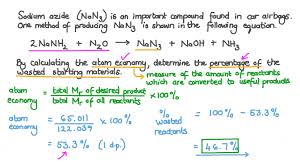 Sodium azide (NaN₃) is an important compound found in car airbags.
One method of producing NaN₃ is shown in the following equation.
2 NaNH₂ + N₂O → NaN₃ + NaOH + NH₃
By calculating the atom economy, determine the percentage of the
wasted starting materials.
measure of the amount of reactants
which are converted to useful products
atom economy = total Mr of desired product / total Mr of all reactants × 100%
atom economy = 65.011 / 122.039 × 100%
= 53.3% (1 dp.)
% wasted reactants = 100% - 53.3%
= 46.7%